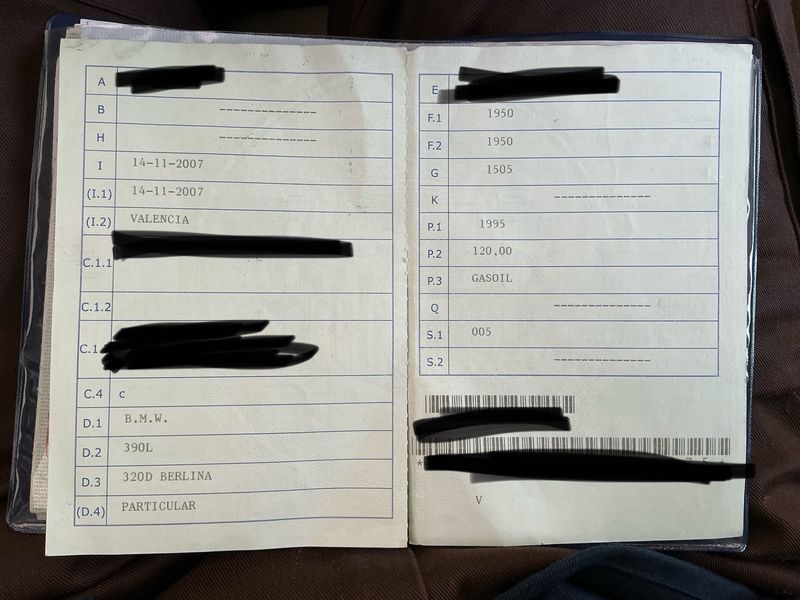 A
B --------------
H --------------
I 14-11-2007
(I.1) 14-11-2007
(I.2) VALENCIA
C.1.1
C.1.2
C.1
C.4 c
D.1 B.M.W.
D.2 390L
D.3 320D BERLINA
(D.4) PARTICULAR
E
F.1 1950
F.2 1950
G 1505
K --------------
P.1 1995
P.2 120,00
P.3 GASOIL
Q --------------
S.1 005
S.2 --------------
*
V